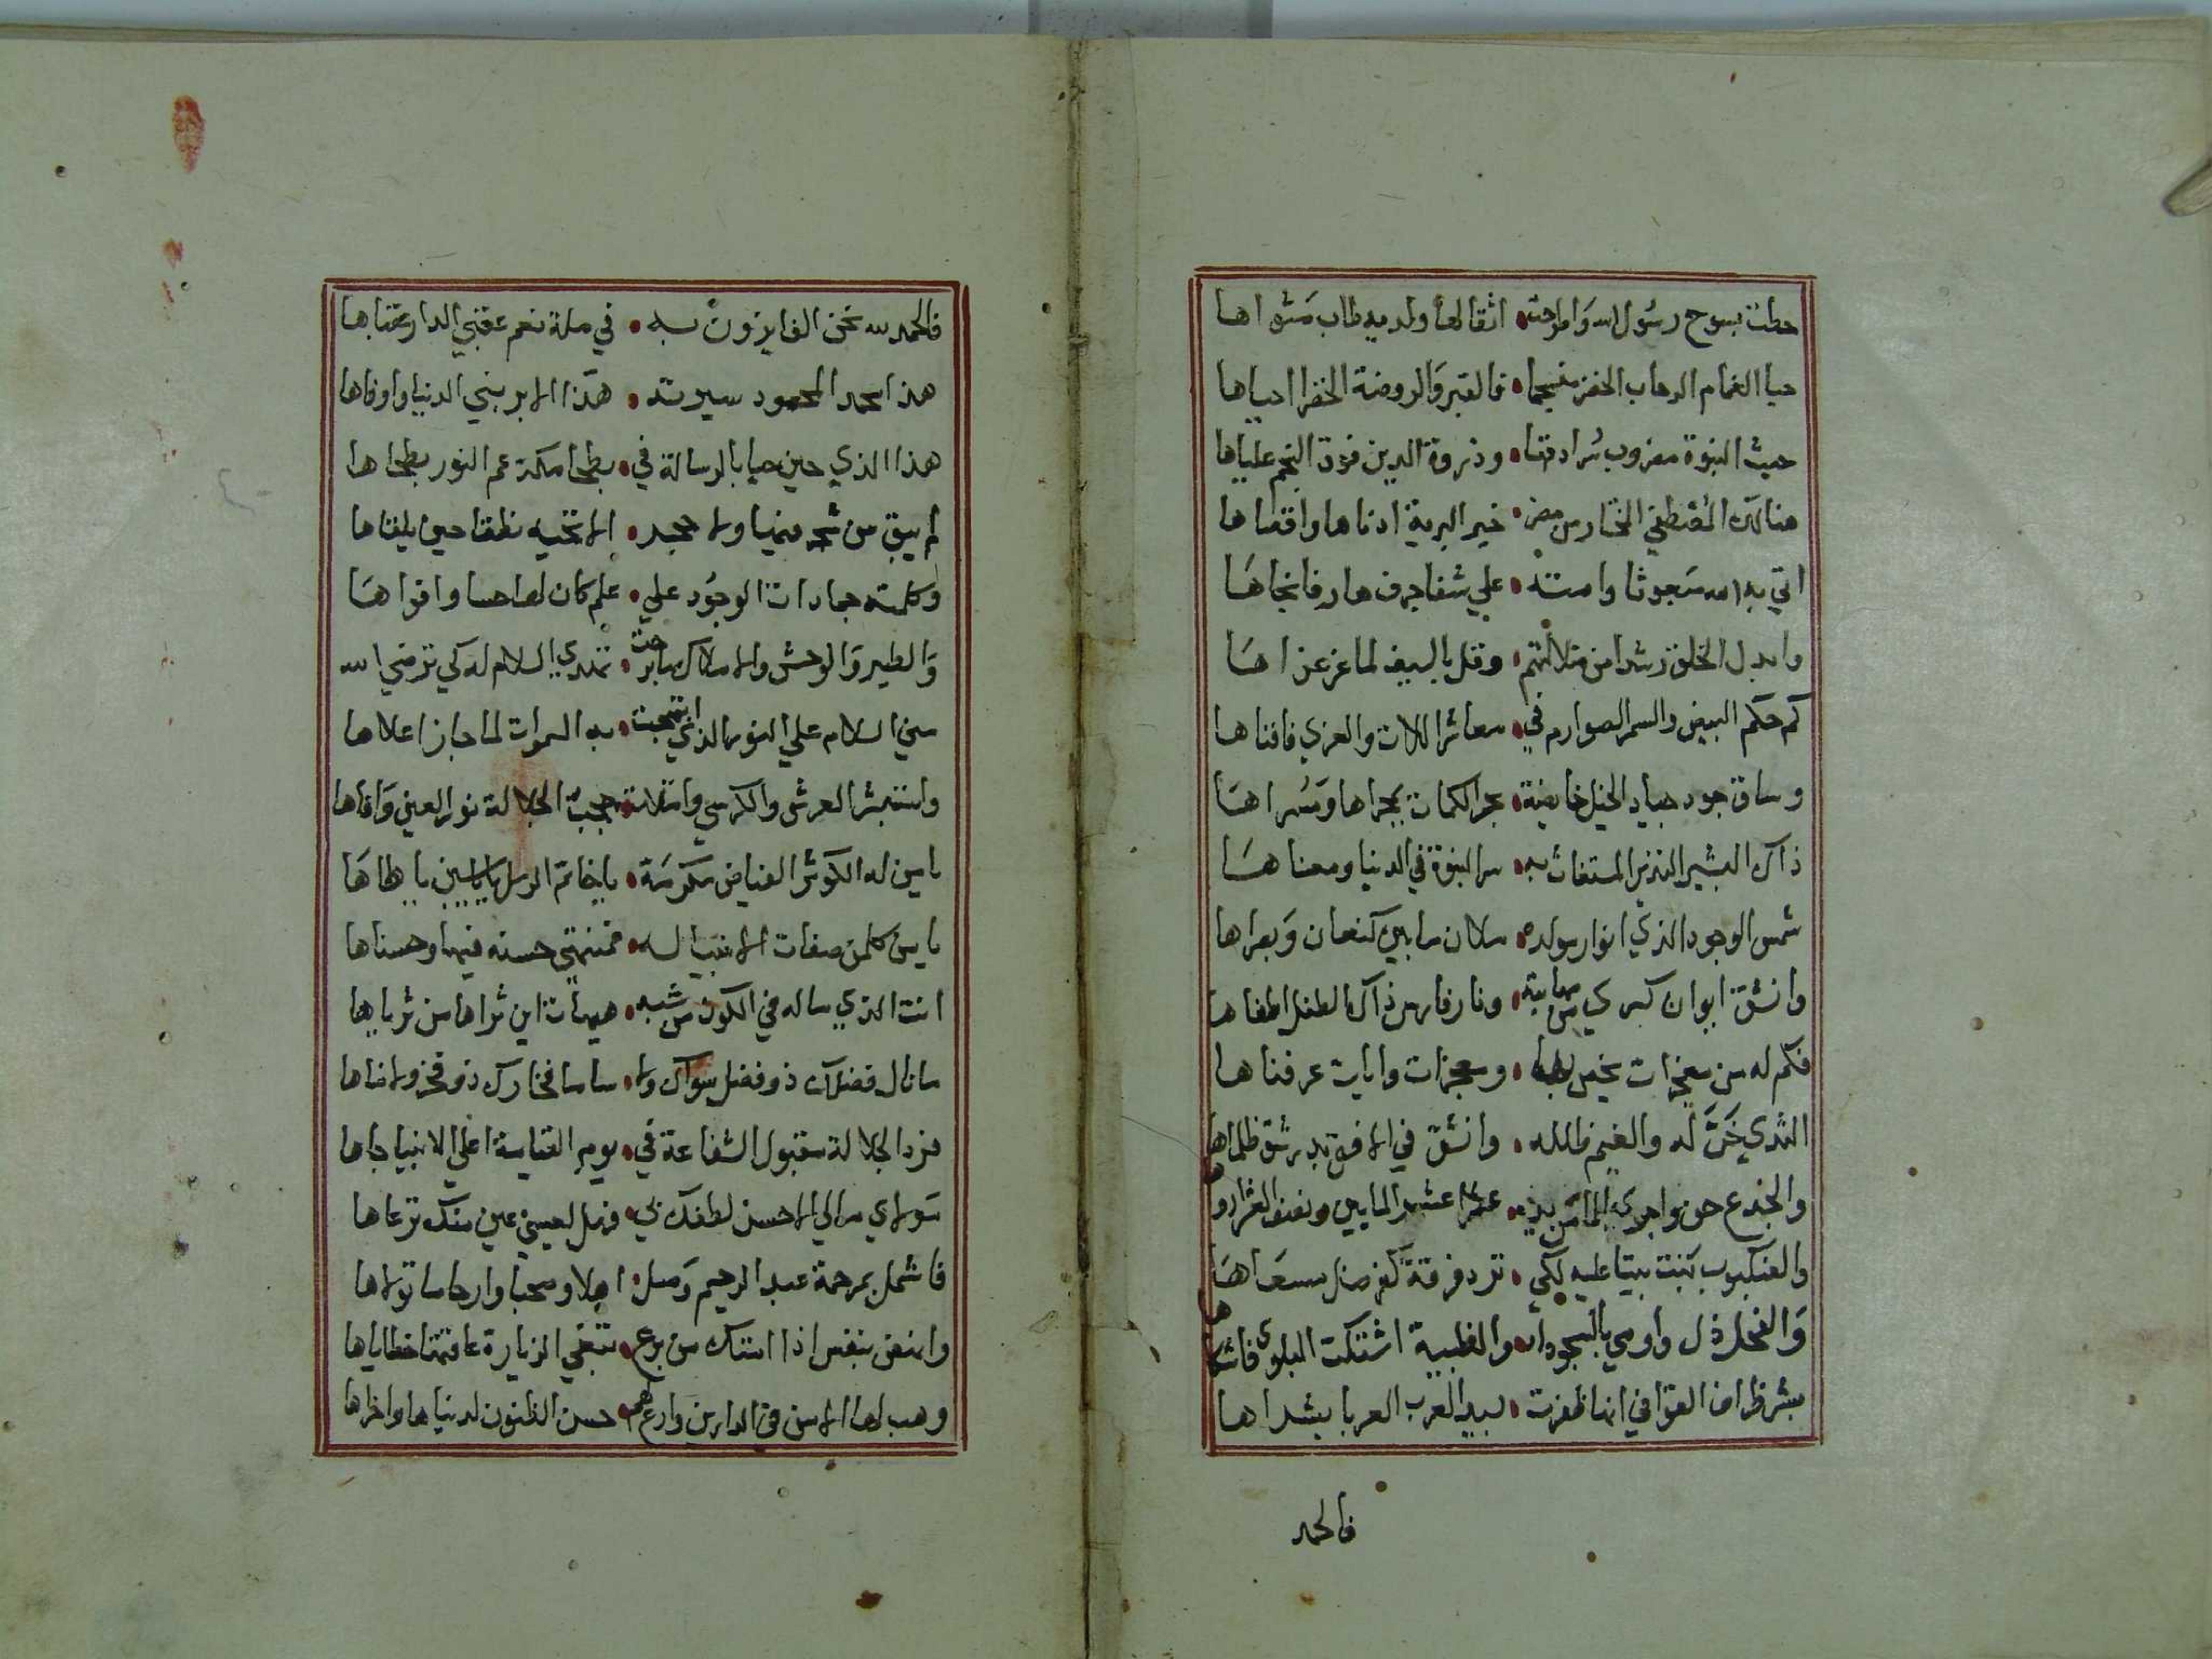 حطت بسوح رسول الله واطرحت • اثقالها ولديه طاب مثواها
حيا الغمام الرحاب الخضر منسجما • فالقبر والروضة الخضرا احياها
حيث النبوة مضروب سرادقها • وذروة الدين فوق النجم علياها
هنالك المصطفي المختار من مضر • خير البرية ادناها واقصاها
اتي به الله مبعوثا وامته • علي شفا جرف هار فانجاها
وابدل الخلق رشدا من ضلالتهم • وفل بالسيف لما عز عزاها
كم حكم البيض والسمر الصوارم في • معاشر اللات والعزي فافناها
وساق جود جياد الخيل خايضة • بحر الكمات بمجراها ومرساها
ذاك البشير النذير المستغاث به • سر النبوة في الدنيا ومعناها
شمس الوجود الذي انوار مولده • ملان ما بين كنعان وبصراها
وانشق ايوان كسري من مهابته • ونار فارس ذاك الطفل اطفاها
فكم له من معجزات يخص بها • ومعجزات وايات عرفناها
الثدي خر له والغيم ظلله • وانشق في الافق بدر شق ظلماها
والجذع حن واجري الما من يده • عشرا عشر المايين ونصف العشر ارواها
والعنكبوت بنت بيتا عليه لكي • ترد فرقة كفر ضل مسعاها
والفحل ذل واومي بالسجود له • والظبية اشتكت البلوي فاشكاها
بشر ظراف القوافي انها ظفرت • بسيد العرب العربا بشراها
فالحمد
فالحمد لله نحن الفايزون به • في ملة نعم عقبي الدار عقباها
هذا محمد المحمود سيرته • هذا الابر بني الدنيا واوفاها
هذا الذي حين حيا بالرسالة في • بطحا مكة عم النور بطحاها
لم يبق من شجر فيها ولا حجر • الا تحييه نطقا حين يلقاها
وكلمته جمادات الوجود علي • علم كان لها حسا وافواها
والطير والوحش والاملاك ما برحت • تهدي السلام له كي ترضي الله
مني السلام علي النور الذي ابتهجت • به السموات لما جاز اعلاها
واستبشر العرش والكرسي وامتلات • حجب الجلالة نور العين وافاها
يا من له الكوثر الفياض مكرمة • يا خاتم الرسل يا ياسين يا طاها
يا من كلمن صفات الانبيا له • فمنتهي حسنه فيها وحسناها
انت الذي ما له في الكون من شبه • هيهات اين ثراها من ثرياها
ما نال فضلك ذو فضل سواك ولا • ساما فخارك ذو فخر ولا ضاها
فرد الجلالة مقبول الشفاعة في • يوم القيامة اعلي الانبيا جاها
مولاي مالي الاحسن لطفك بي • فهل لعيني عين منك ترعاها
فاشمل برحمة عبد الرحيم وصل • اهلا وصحبا وارحاما تولاها
وانهض بنفس اذا اتتك من برع • تبغي الزيارة عاقتها خطاياها
وهب لها الامن في الدارين وارع لهم • حسن الظنون لدنياها واخراها